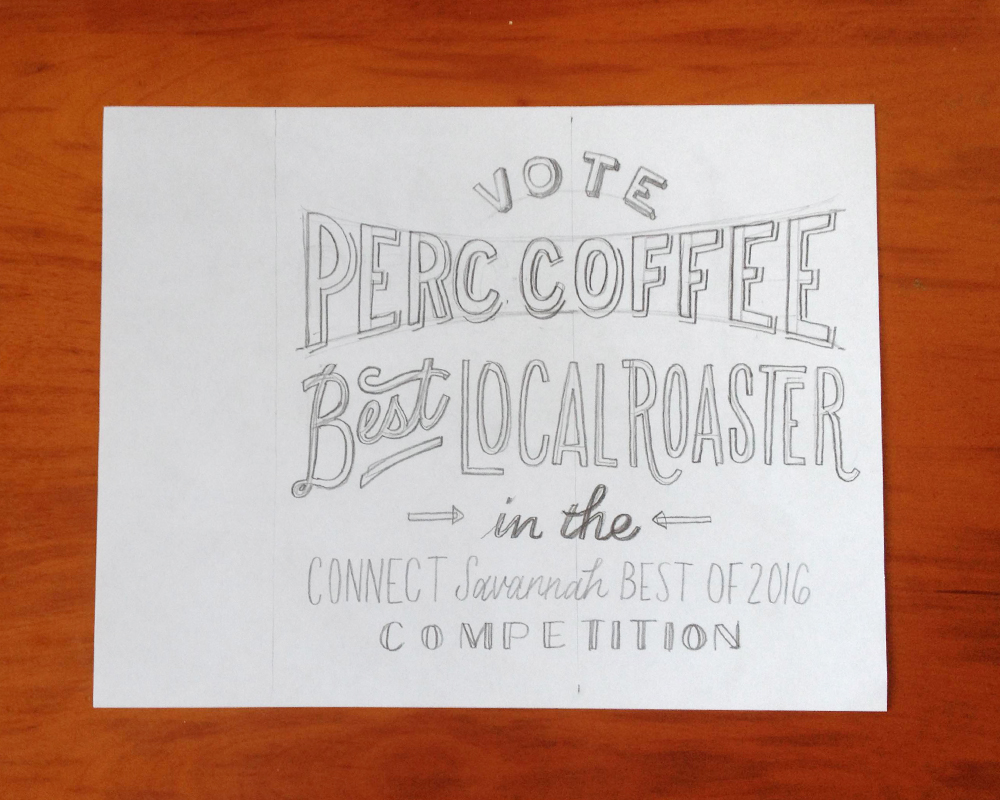 VOTE
PERC COFFEE
Best LOCAL ROASTER
in the
CONNECT Savannah BEST OF 2016
COMPETITION